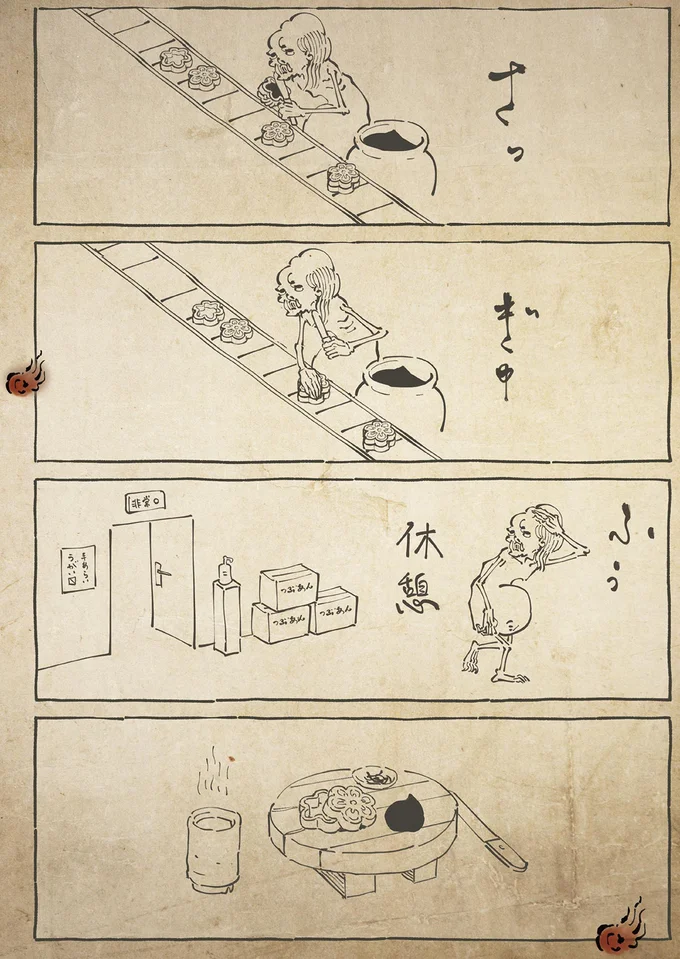 さっ
ぎゅ
ふぅ
休憩
非常口
手あらい
うがい
つぶあん
つぶあん
つぶあん